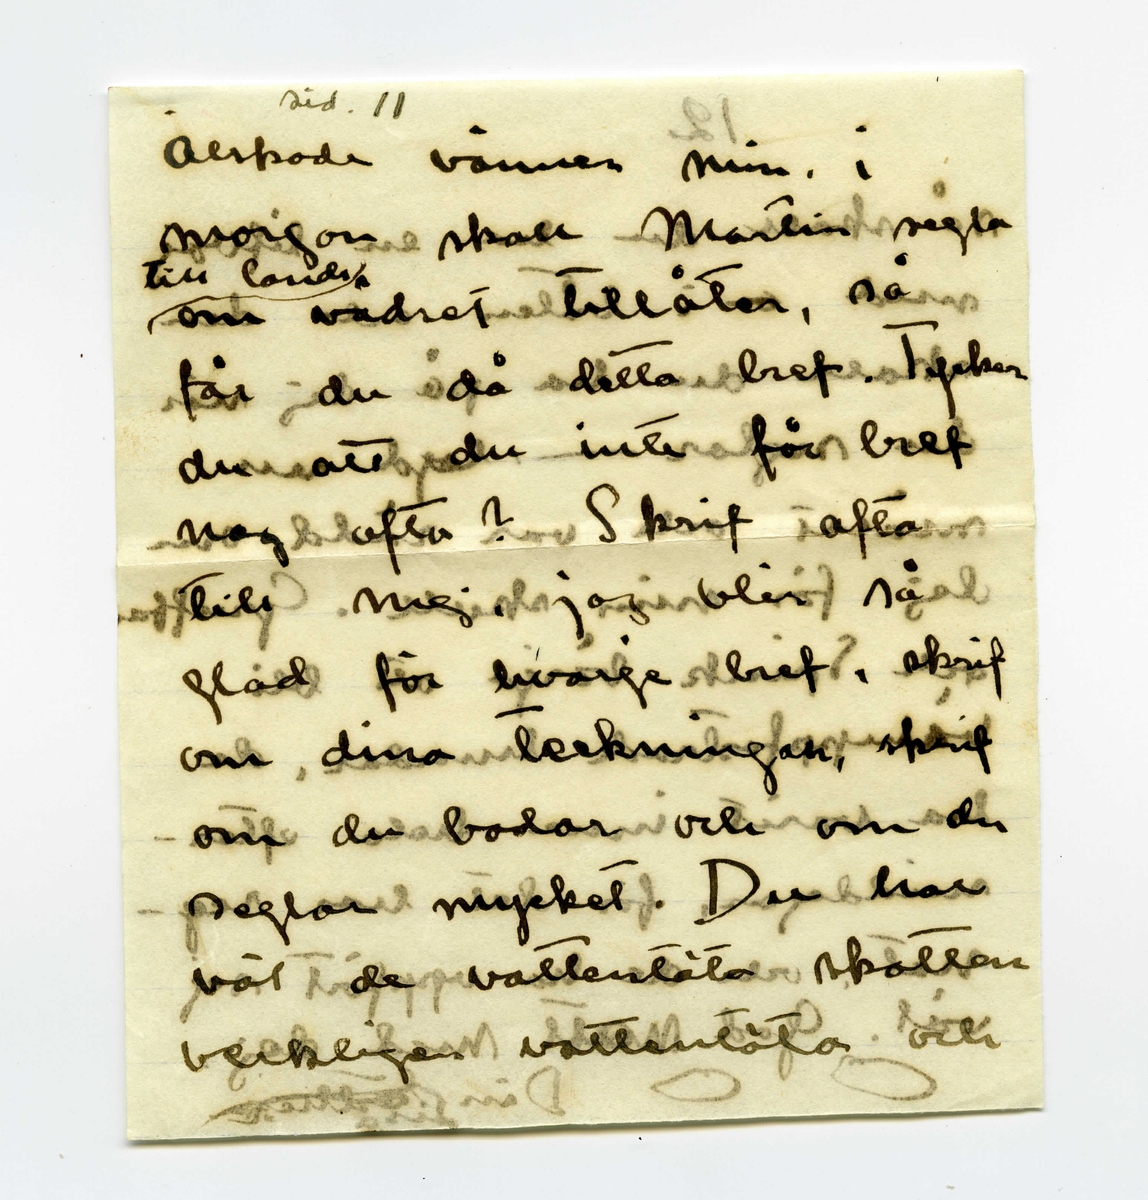 sid. 11
Älskade vännen min. i
morgon skall Martin segla
till lands
om vädret tillåter, så
får du då detta bref. Tycker
du att du inte får bref
nog ofta? Skrif ofta
till mej, jag blir så
glad för hvarge bref, skrif
om dina teckningar, skrif
om du badar och om du
seglar mycket. Du har
väl de vattentäta skotten
verkligen vattentäta och